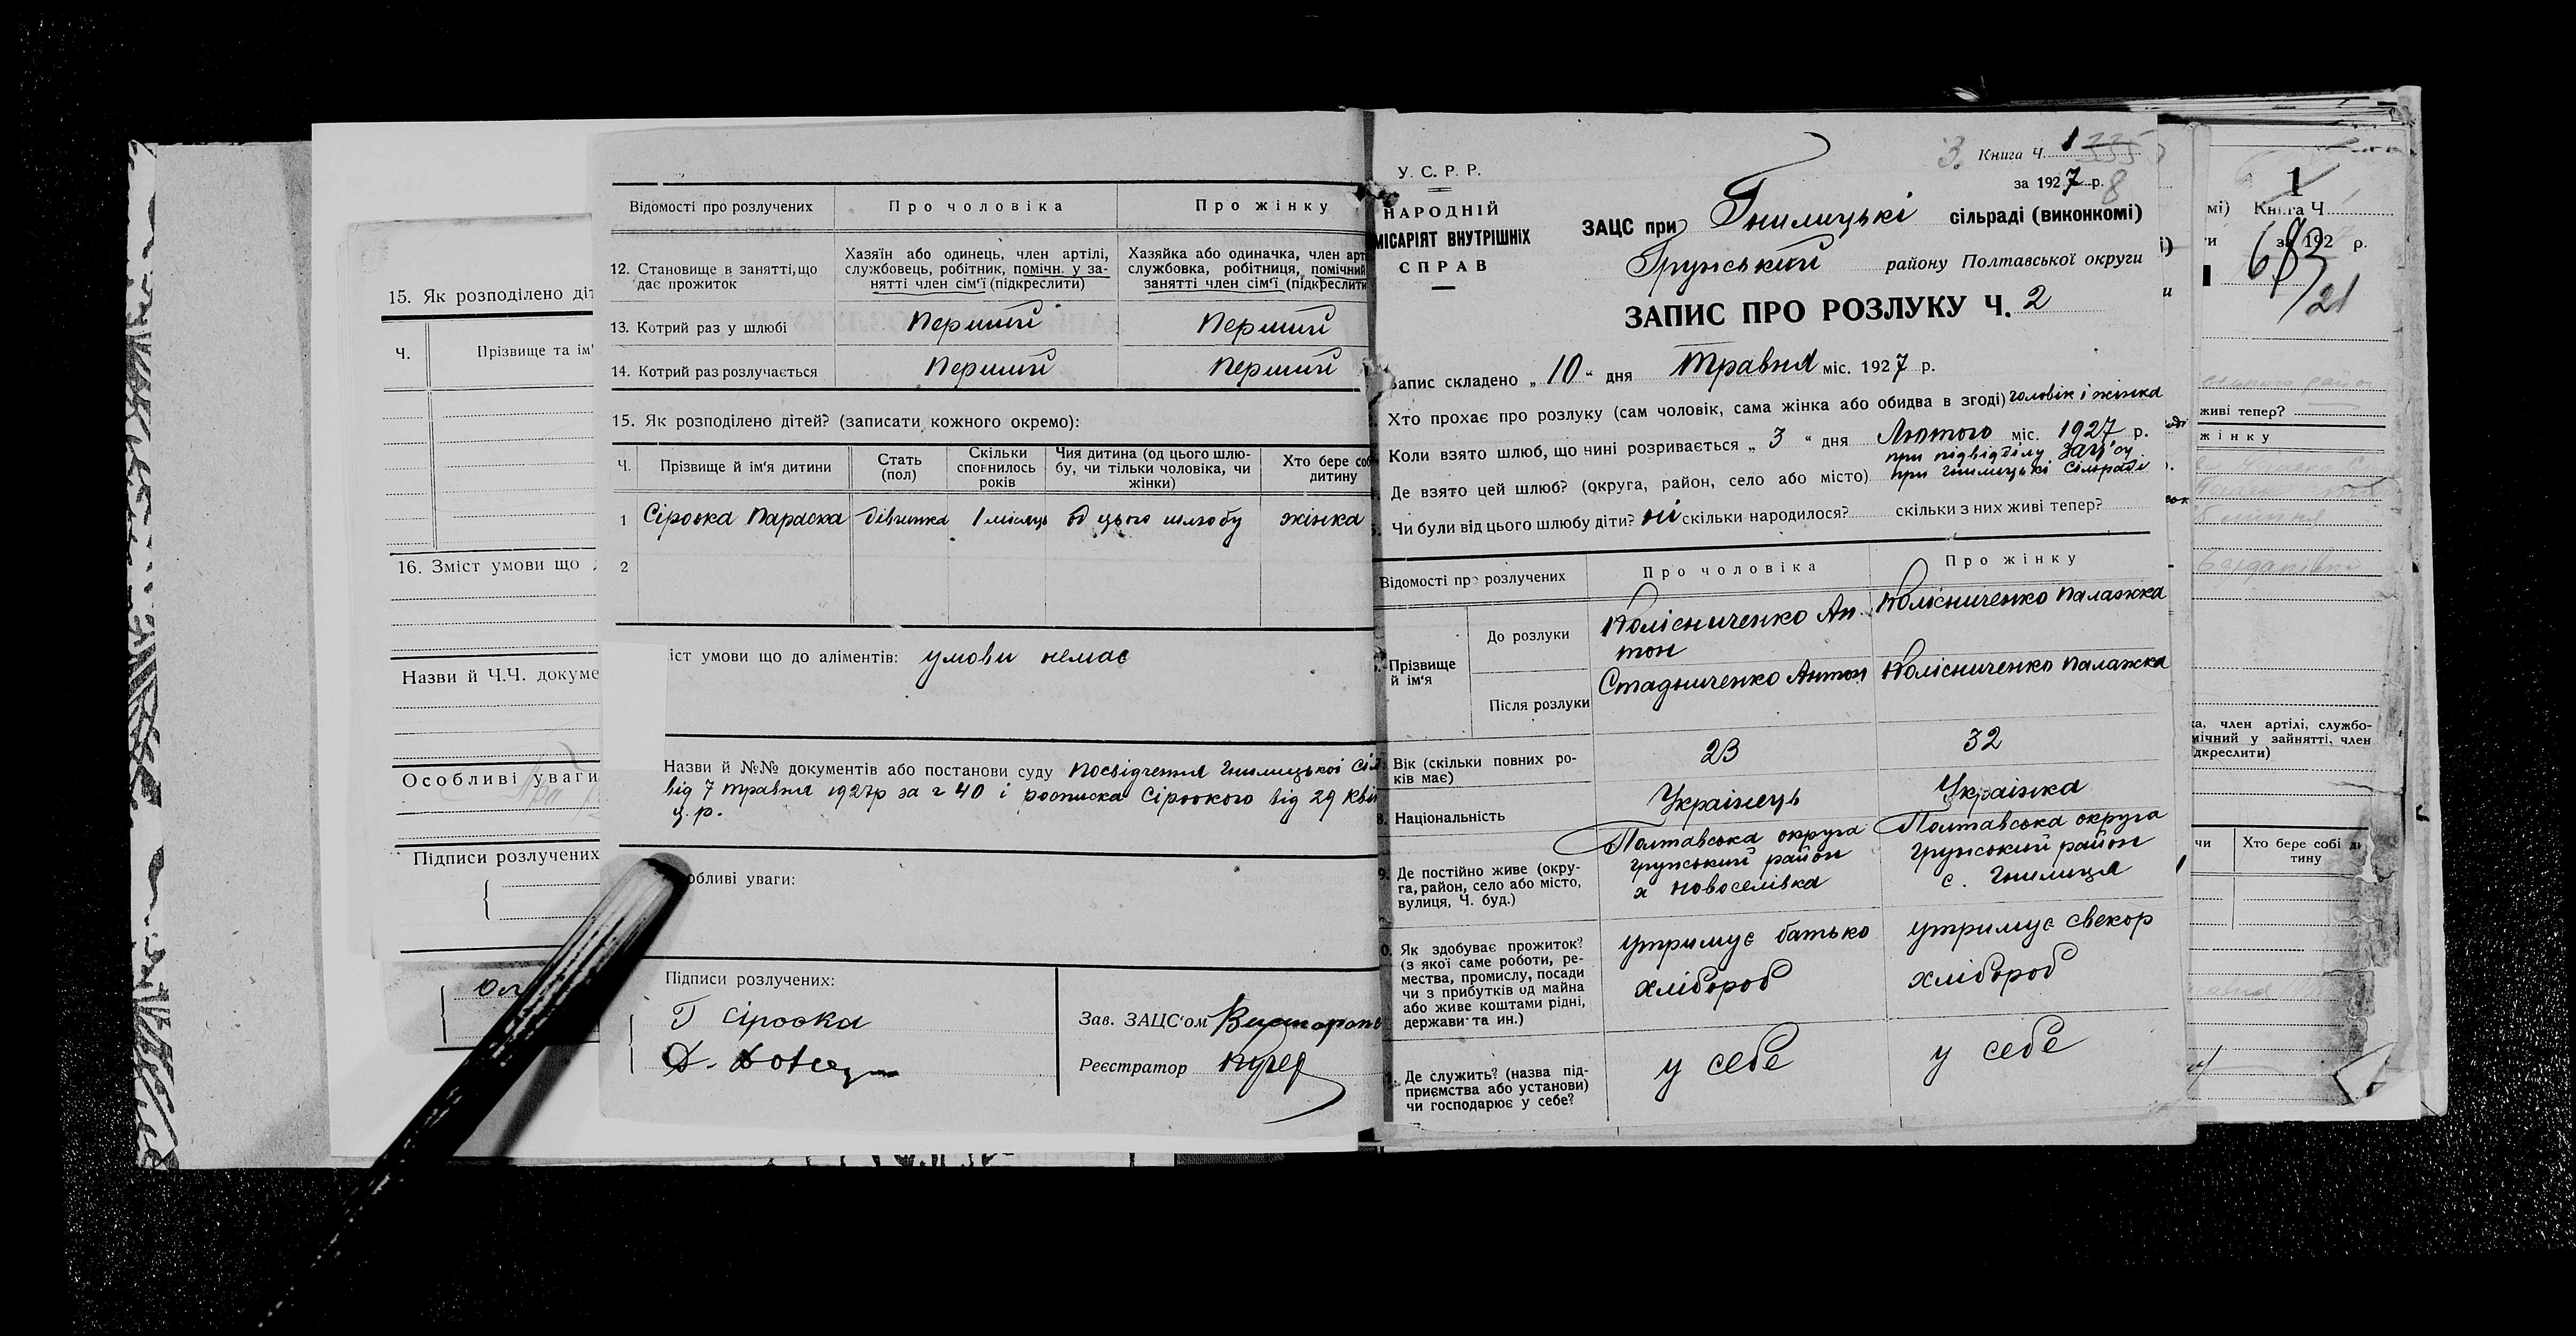 15. Як розподілено діт
Ч.
Прізвище та ім'
16. Зміст умови що
Назви й Ч.Ч. докуме
Особливі уваги
Підписи розлучених
Відомості про розлучених
Про чоловіка
Про жінку
12. Становище в занятті, що дає прожиток
Хазяїн або одинець, член артілі,
службовець, робітник, помічн. у за-
нятті член сім'ї (підкреслити)
Хазяйка або одиначка, член арт
службовка, робітниця, помічний
занятті член сім'ї (підкреслити
13. Котрий раз у шлюбі
Перший
Перший
14. Котрий раз розлучається
Перший
Перший
15. Як розподілено дітей? (записати кожного окремо):
Ч.
Прізвище й ім'я дитини
Стать
(пол)
Скільки
сповнилось
років
Чия дитина (од цього шлю-
бу, чи тільки чоловіка, чи
жінки)
Хто бере соб
дитину
1
Сіроока Параска
дівчинка
1 місяць
од цього шлюбу
жінка
2
іст умови що до аліментів: умови немає
Назви й №№ документів або постанови суду Посвідчення Гнилицької Сіл
від 7 травня 1927р за ч 40 і росписка Сіроокого від 29 Кві
ц.р.
обливі уваги:
Підписи розлучених:
Г Сіроока
Зав. ЗАЦС'ом
Реєстратор Кучер
У. С. Р. Р.
НАРОДНІЙ
МІСАРІЯТ ВНУТРІШНІХ
СПРАВ
3. Книга Ч. 1
за 1927 р.
8
ЗАЦС при Гнилицькі сільраді (виконкомі)
Грунський району Полтавської округи
ЗАПИС ПРО РОЗЛУКУ Ч. 2
Запис складено „ 10 “ дня Травня міс. 1927 р.
Хто прохає про розлуку (сам чоловік, сама жінка або обидва в згоді) чоловік і жінка
Коли взято шлюб, що нині розривається „ 3 “ дня Лютого міс. 1927 р.
при підвідділу Зац'су
Де взято цей шлюб? (округа, район, село або місто) при Гнилицькі Сільраді
Чи були від цього шлюбу діти? ні скільки народилося? скільки з них живі тепер?
Відомості про розлучених
Про чоловіка
Про жінку
Прізвище
й ім'я
До розлуки
Колісниченко Ан
тон
Колісниченко Палажка
Після розлуки
Стадниченко Антон
Колісниченко Палажка
Вік (скільки повних ро-
ків має)
23
32
8. Національність
Українець
Українка
9. Де постійно живе (окру-
га, район, село або місто,
вулиця, Ч. буд.)
Полтавська округа
Грунський район
х Новоселівка
Полтавська округа
Грунський район
с. Гнилиця
0. Як здобуває прожиток?
(з якої саме роботи, ре-
мества, промислу, посади
чи з прибутків од майна
або живе коштами рідні,
держави та ин.)
утримує батько
хлібороб
утримує свекор
хлібороб
Де служить? (назва під-
приємства або установи)
чи господарює у себе?
у себе
у себе
1
мі) Книга Ч.
ти за 192 р.
683
/21
живі тепер?
жінку
ка, член артілі, службо-
мічний у зайнятті, член
дкреслити)
чи
Хто бере собі ди
тину